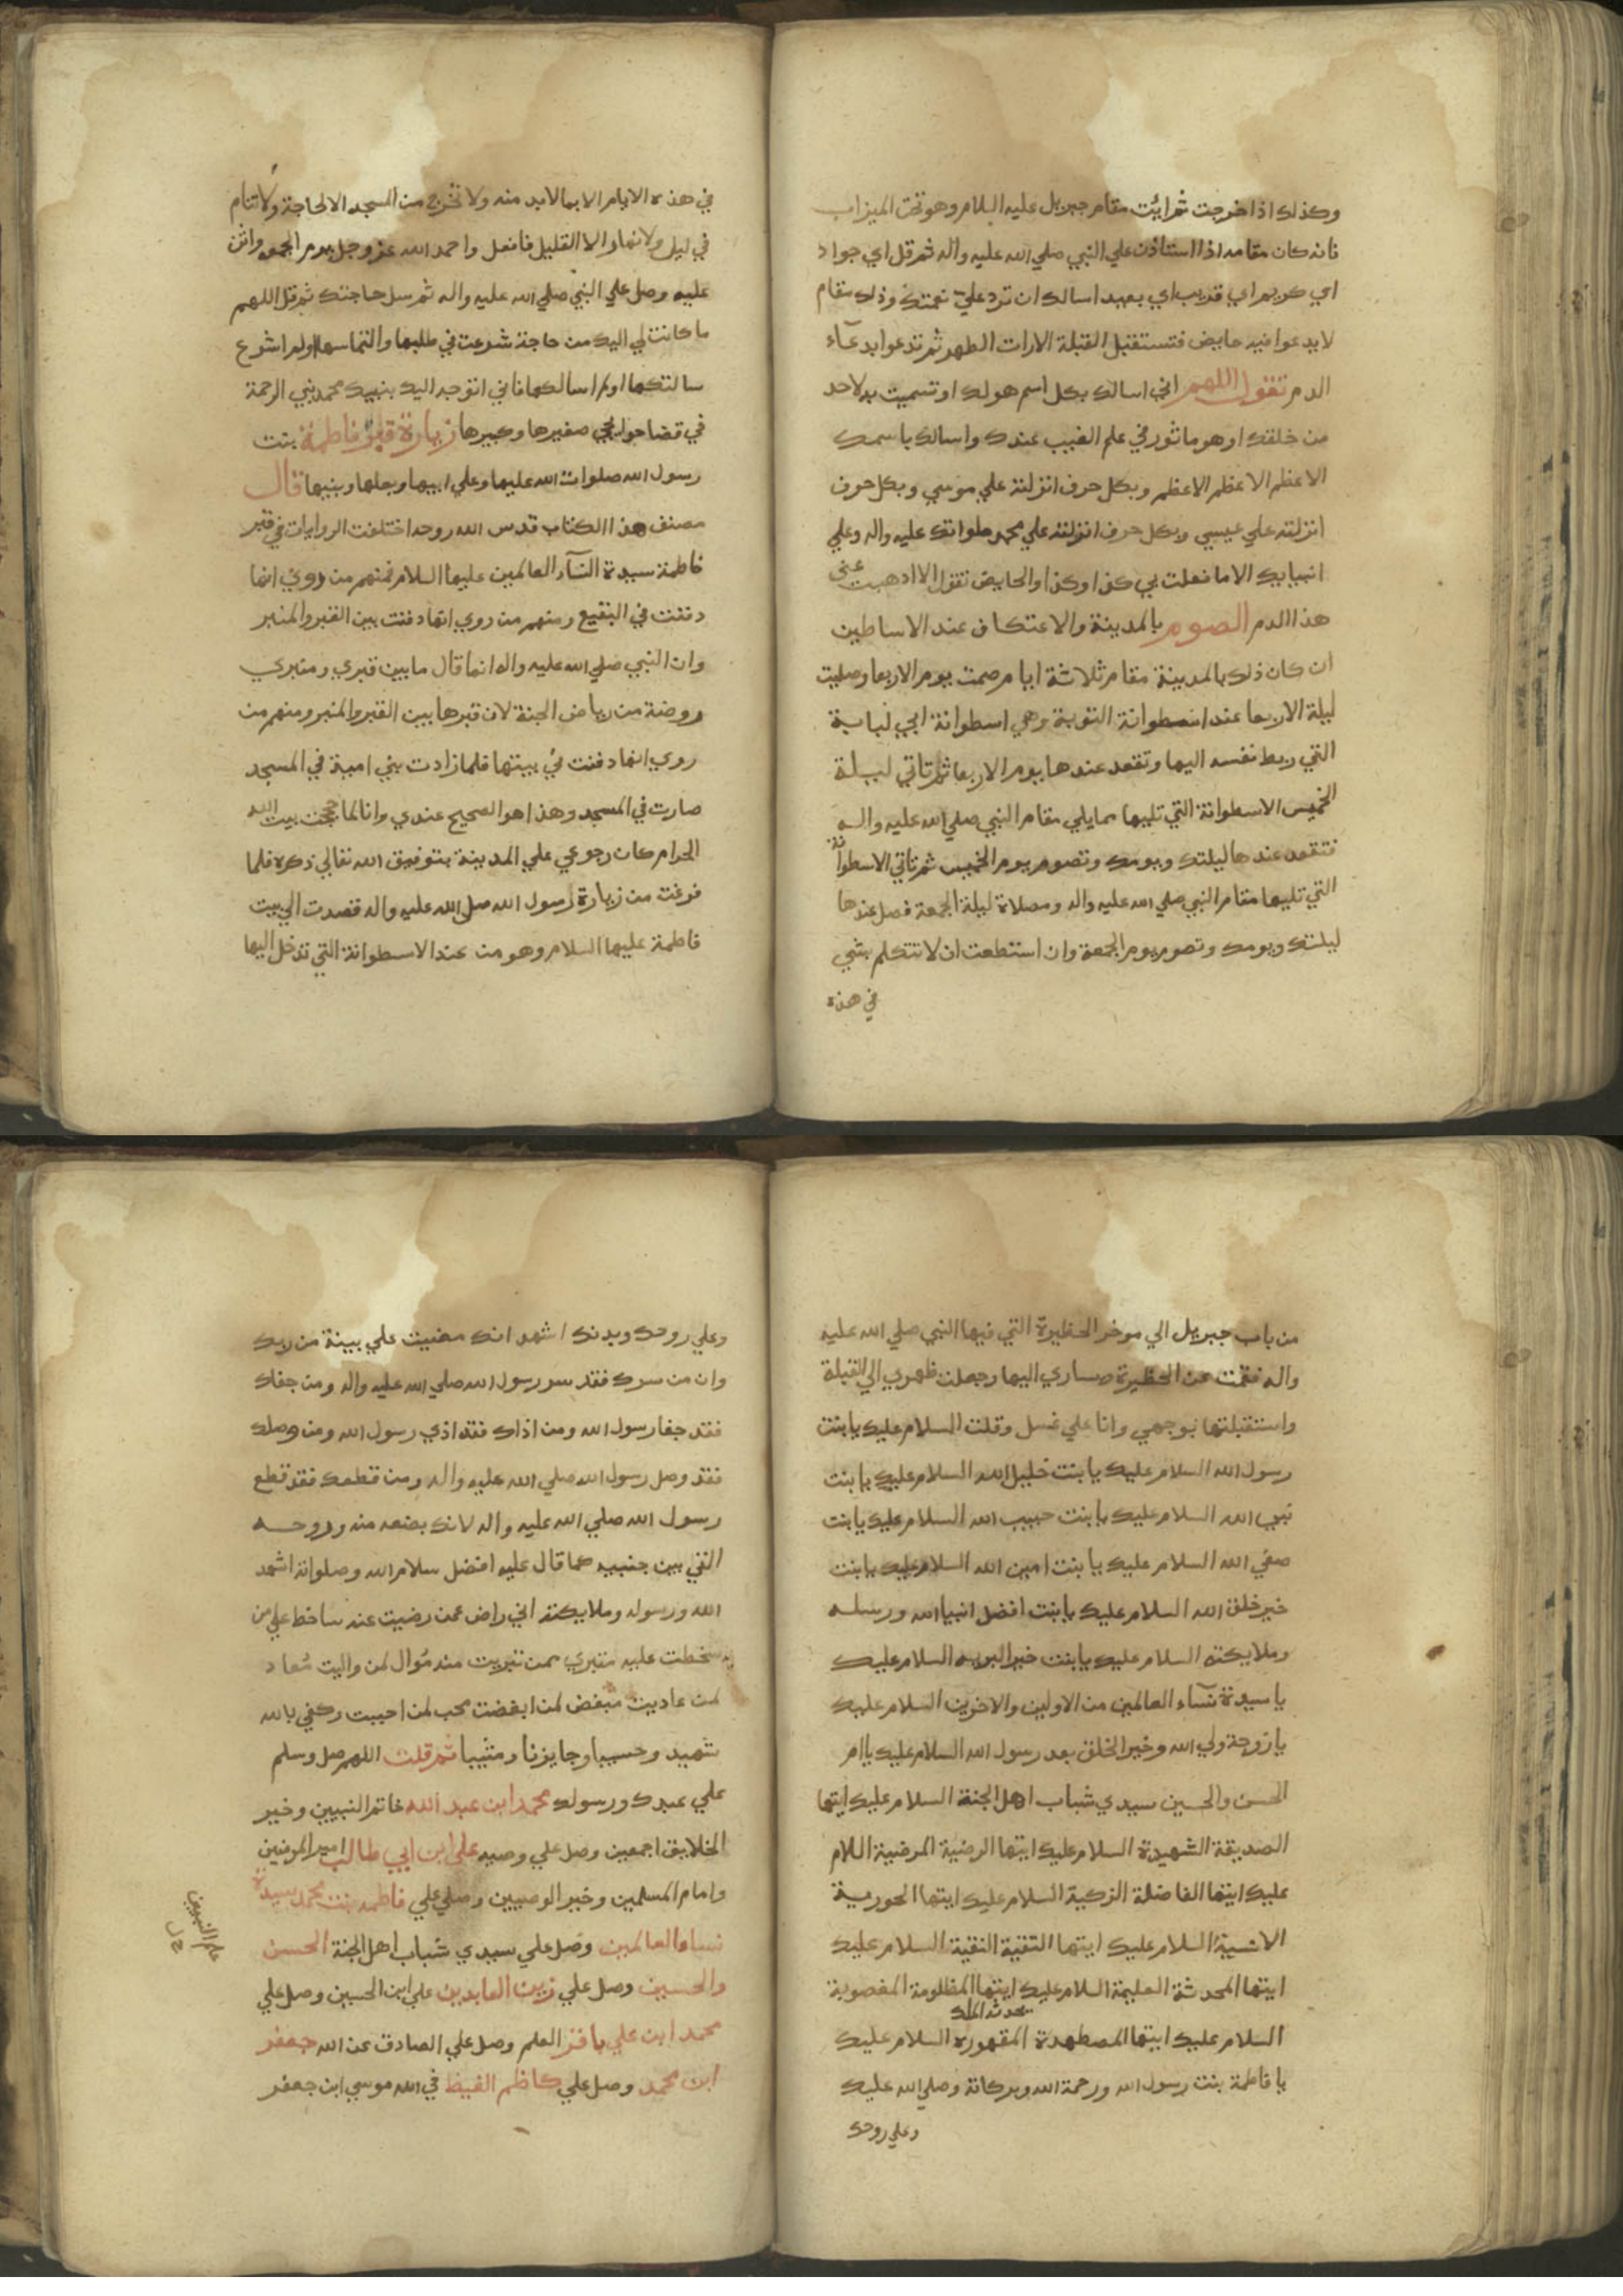 وكذلك اذا خرجت ثم ائت مقام جبريل عليه السلام وهو تحت الميزاب
فانه كان مقامه اذا استاذن علي النبي صلي الله عليه واله ثم قل اي جواد
اي كريم اي قريب اي بعيد اسالك ان ترد علي نعمتك وذلك مقام
لا يدعوا فيه حايض فتستقبل القبلة الا رات الطهر ثم تدعوا بدعآء
الدم تقول اللهم اني اسالك بكل اسم هو لك او تسميت به لاحد
من خلقك او هو ماثور في علم الغيب عندك واسالك باسمك
الاعظم الاعظم الاعظم وبكل حرف انزلته علي موسي وبكل حرف
انزلته علي عيسي وبكل حرف انزلته علي محمد صلواتك عليه واله وعلي
انبيايك الا ما فعلت بي كذا وكذا والحايض تقول الا اذهبت عني
هذا الدم الصوم بالمدينة والاعتكاف عند الاساطين
ان كان ذلك بالمدينة مقام ثلاثة ايام صمت يوم الاربعا وصليت
ليلة الاربعا عند اسطوانة التوبة وهي اسطوانة ابي لبابة
التي ربط نفسه اليها وتقعد عندها يوم الاربعا ثم تاتي ليلة
الخميس الاسطوانة التي تليها مما يلي مقام النبي صلي الله عليه واله
فتقعد عندها ليلتك ويومك وتصوم يوم الخميس ثم تاتي الاسطوانة
التي تليها مقام النبي صلي الله عليه واله ومصلاة ليلة الجمعة فصل عندها
ليلتك ويومك وتصوم يوم الجمعة وان استطعت ان لا تتكلم بشي
في هذه
في هذه الايام الا بما لا بد منه ولا تخرج من المسجد الا لحاجة ولا تنام
في ليل ولا نهار الا القليل فافعل واحمد الله عز وجل يوم الجمعه واثن
عليه وصل علي النبي صلي الله عليه واله ثم سل حاجتك ثم قل اللهم
ما كانت لي اليك من حاجة شرعت في طلبها والتماسها او لم اشرع
سالتكها او لم اسالكها فاني اتوجه اليك بنبيك محمد نبي الرحمة
في قضا حوايجي صغيرها وكبيرها زيارة قبر فاطمة بنت
رسول الله صلوات الله عليها وعلي ابيها وبعلها وبنيها قال
مصنف هذا الكتاب قدس الله روحه اختلفت الروايات في قبر
فاطمة سيدة النسآء العالمين عليها السلام فمنهم من روي انها
دفنت في البقيع ومنهم من روي انها دفنت بين القبر والمنبر
وان النبي صلي الله عليه واله انما قال ما بين قبري ومنبري
روضة من رياض الجنة لان قبرها بين القبر والمنبر ومنهم من
روي انها دفنت في بيتها فلما زادت بني امية في المسجد
صارت في المسجد وهذا هو الصحيح عندي وانا لما حججت بيت الله
الحرام كان رجوعي علي المدينة بتوفيق الله تعالي ذكره فلما
فرغت من زيارة رسول الله صلي الله عليه واله قصدت الي بيت
فاطمة عليها السلام وهو من عند الاسطوانة التي تدخل اليها
من باب جبريل الي موخر الحظيرة التي فيها النبي صلي الله عليه
واله فقمت عن الحظيرة ويساري اليها وجعلت ظهري الي القبلة
واستقبلتها بوجهي وانا علي غسل وقلت السلام عليك يا بنت
رسول الله السلام عليك يا بنت خليل الله السلام عليك يا بنت
نبي الله السلام عليك يا بنت حبيب الله السلام عليك يا بنت
صفي الله السلام عليك يا بنت امين الله السلام عليك يا بنت
خير خلق الله السلام عليك يا بنت افضل انبيا الله ورسله
وملايكته السلام عليك يا بنت خير البريه السلام عليك
يا سيدة نسآء العالمين من الاولين والاخرين السلام عليك
يا زوجة ولي الله وخير الخلق بعد رسول الله السلام عليك يا ام
الحسن والحسين سيدي شباب اهل الجنة السلام عليك ايتها
الصديقة الشهيدة السلام عليك ايتها الرضية المرضية السلام
عليك ايتها الفاضلة الزكية السلام عليك ايتها الحورية
الانسية السلام عليك ايتها التقية النقية السلام عليك
ايتها المحدثة العليمة السلام عليك ايتها المظلومة المغصوبة
السلام عليك ايتها المضطهدة المقهورة السلام عليك
يا فاطمة بنت رسول الله ورحمة الله وبركاته وصلي الله عليك
وعلي روحك
وعلي روحك وبدنك اشهد انك مضيت علي بينة من ربك
وان من سرك فقد سر رسول الله صلي الله عليه واله ومن جفاك
فقد جفا رسول الله ومن اذاك فقد اذي رسول الله ومن وصلك
فقد وصل رسول الله صلي الله عليه واله ومن قطعك فقد قطع
رسول الله صلي الله عليه واله لانك بضعه منه وروحه
التي بين جنبيه كما قال عليه افضل سلام الله وصلواته اشهد
الله ورسوله وملايكته اني راض عمن رضيت عنه ساخط علي من
سخطت عليه متبري ممن تبريت منه موال لمن واليت معاد
لمن عاديت مبغض لمن ابغضت محب لمن احببت وكفي بالله
شهيد وحسيبا وجايزنا ومثيبا ثم قلت اللهم صل وسلم
علي عبدك ورسولك محمد ابن عبد الله خاتم النبيين وخير
الخلايق اجمعين وصل علي وصيه علي ابن ابي طالب امير المومنين
وامام المسلمين وخير الوصيين وصلي علي فاطمه بنت محمد سيدة
نساء العالمين وصل علي سيدي شباب اهل الجنة الحسن
والحسين وصل علي زين العابدين علي ابن الحسين وصل علي
محمد ابن علي باقر العلم وصل علي الصادق عن الله جعفر
ابن محمد وصل علي كاظم الغيظ في الله موسي ابن جعفر